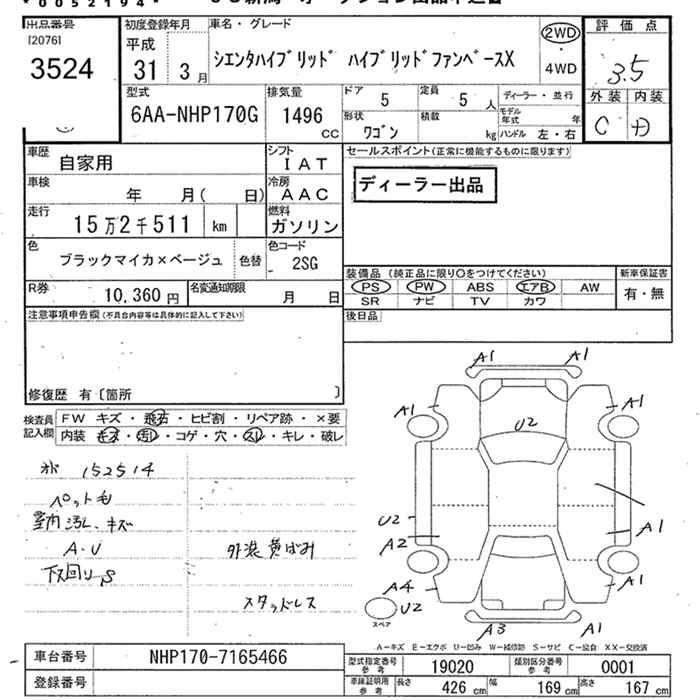 * 0052194 *
出品番号
[2076]
3524
初度登録年月
平成
31 3 月
車名・グレード
シエンタハイブリッド ハイブリッドファンベースX
2WD
・
4WD
評価点
3.5
外装 内装
C D
型式
6AA-NHP170G
排気量
1496
CC
ドア
5
定員
5 人
ディーラー・並行
モデル年式 年
形状
ワゴン
積載
kg
ハンドル 左・右
車歴
自家用
シフト
IAT
セールスポイント(正常に機能するものに限ります)
ディーラー出品
車検
年 月( 日)
冷房
AAC
走行
15万2千511 km
燃料
ガソリン
色
ブラックマイカ×ベージュ
色替
色コード
- 2SG
装備品(純正品に限り○をつけてください)
新車保証書
PS PW ABS エアB AW
有・無
SR ナビ TV カワ
R券
10,360 円
名変通知期限
月 日
注意事項申告欄(不具合内容等は具体的に記入して下さい)
後日品
修復歴 有〔箇所 〕
検査員
記入欄
FW キズ・飛石・ヒビ割・リペア跡・×要
内装 キズ・汚レ・コゲ・穴・スレ・キレ・破レ
152514
ペット毛
室内汚レ、キズ
A・U
外装黄ばみ
下回りS
スタッドレス
A1 A1
A1 A1
U2
U2
A2
A1
A4
A1
U2
スペア
A3
A1
A-キズ E-エクボ U-凹み W-補修跡 S-サビ C-腐食 XX-交換済
車台番号
NHP170-7165466
登録番号
型式指定番号
参考
19020
類別区分番号
参考
0001
車庫証明用
参考
長さ 426 cm
幅 169 cm
高さ 167 cm